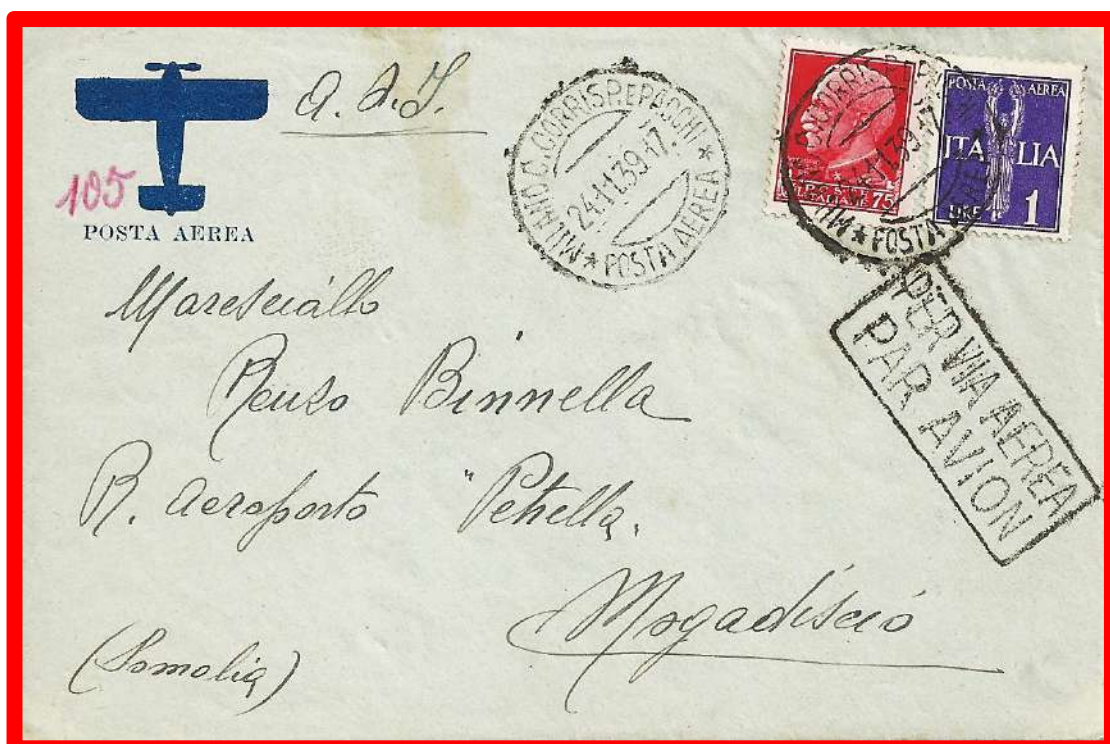 A.O.I.
105
POSTA AEREA
MILANO C. CORRISP. E PACCHI
24.11.39.17.
* POSTA AEREA *
POSTA AEREA
ITALIA
LIRE 1
75
PER VIA AEREA
PAR AVION
Maresciallo
Renzo Binnella
R. Aeroporto "Petrella.
Mogadiscio
(Somalia)